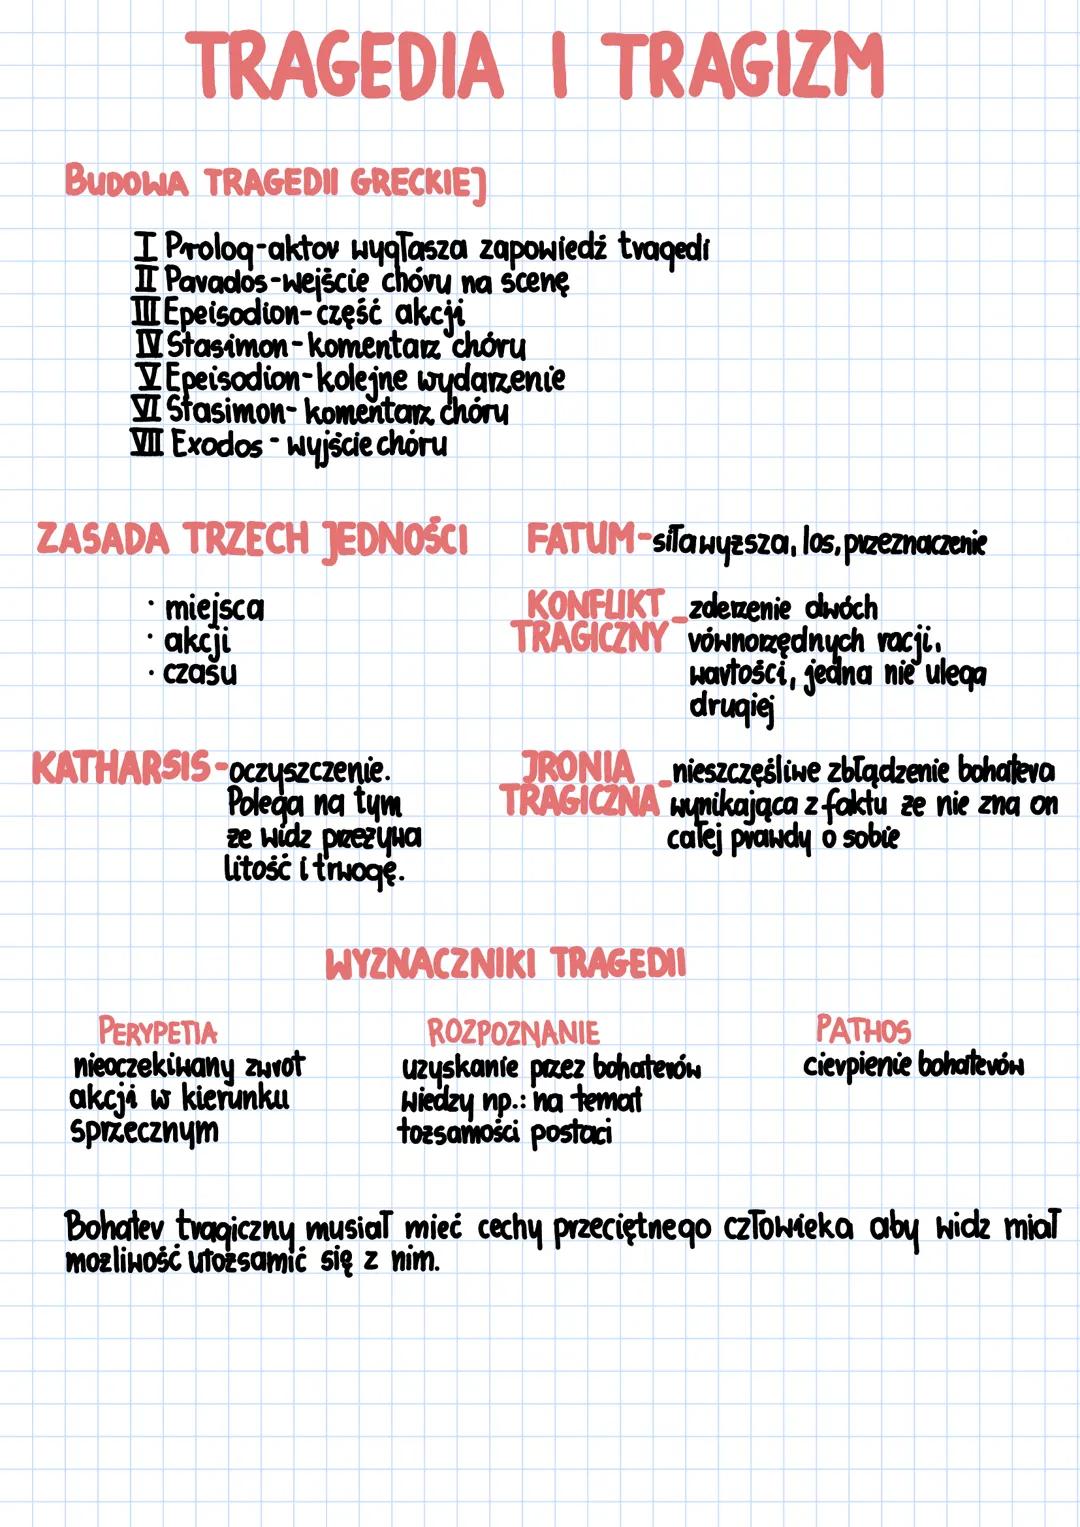 TRAGEDIA I TRAGIZM
BUDOWA TRAGEDII GRECKIEJ
I Prolog-aktor wygłasza zapowiedź tragedi
II Parados-wejście chóru na scenę
III Epeisodion-część akcji
IV Stasimon-komentarz chóru
V Epeisodion-kolejne wydarzenie
VI Stasimon-komentarz chóru
VII Exodos - wyjście chóru
ZASADA TRZECH JEDNOŚCI
· miejsca
· akcji
· czasu
FATUM-siła wyższa, los, przeznaczenie
KONFLIKT TRAGICZNY - zderzenie dwóch
równorzędnych racji,
wartości, jedna nie ulega
drugiej
KATHARSIS-oczyszczenie.
Polega na tym
że widz przeżywa
litość i trwogę.
IRONIA TRAGICZNA - nieszczęśliwe zbłądzenie bohatera
wynikająca z faktu że nie zna on
całej prawdy o sobie
WYZNACZNIKI TRAGEDII
PERYPETIA
nieoczekiwany zwrot
akcji w kierunku
sprzecznym
ROZPOZNANIE
uzyskanie przez bohaterów
wiedzy np.: na temat
tożsamości postaci
PATHOS
cierpienie bohaterów
Bohater tragiczny musiał mieć cechy przeciętnego człowieka aby widz miał
możliwość utożsamić się z nim.